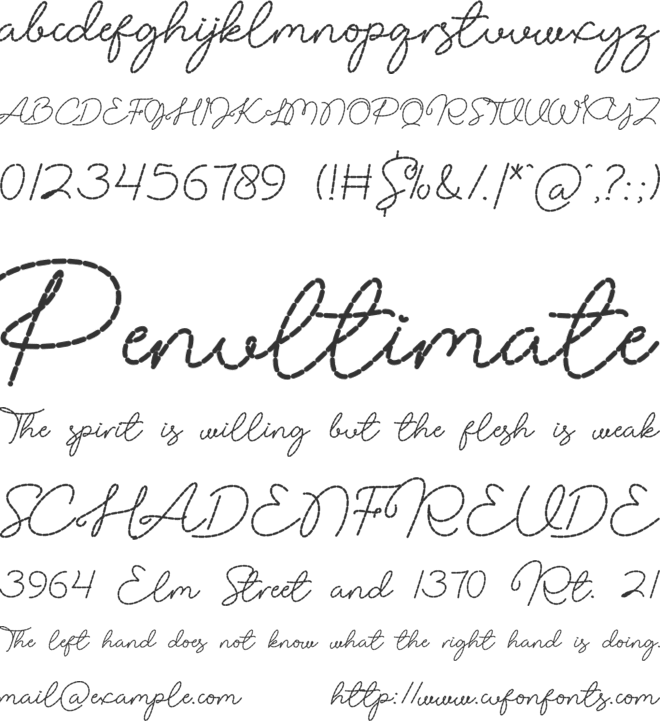 abcdefghijklmnopqrstuvwxyz
ABCDEFGHIJKLMNOPQRSTUVWXYZ
0123456789 (!#$%&/.|*^@^,?:;)
Penultimate
The spirit is willing but the flesh is weak
SCHADENFREUDE
3964 Elm Street and 1370 Rt. 21
The left hand does not know what the right hand is doing.
mail@example.com http://www.cufonfonts.com